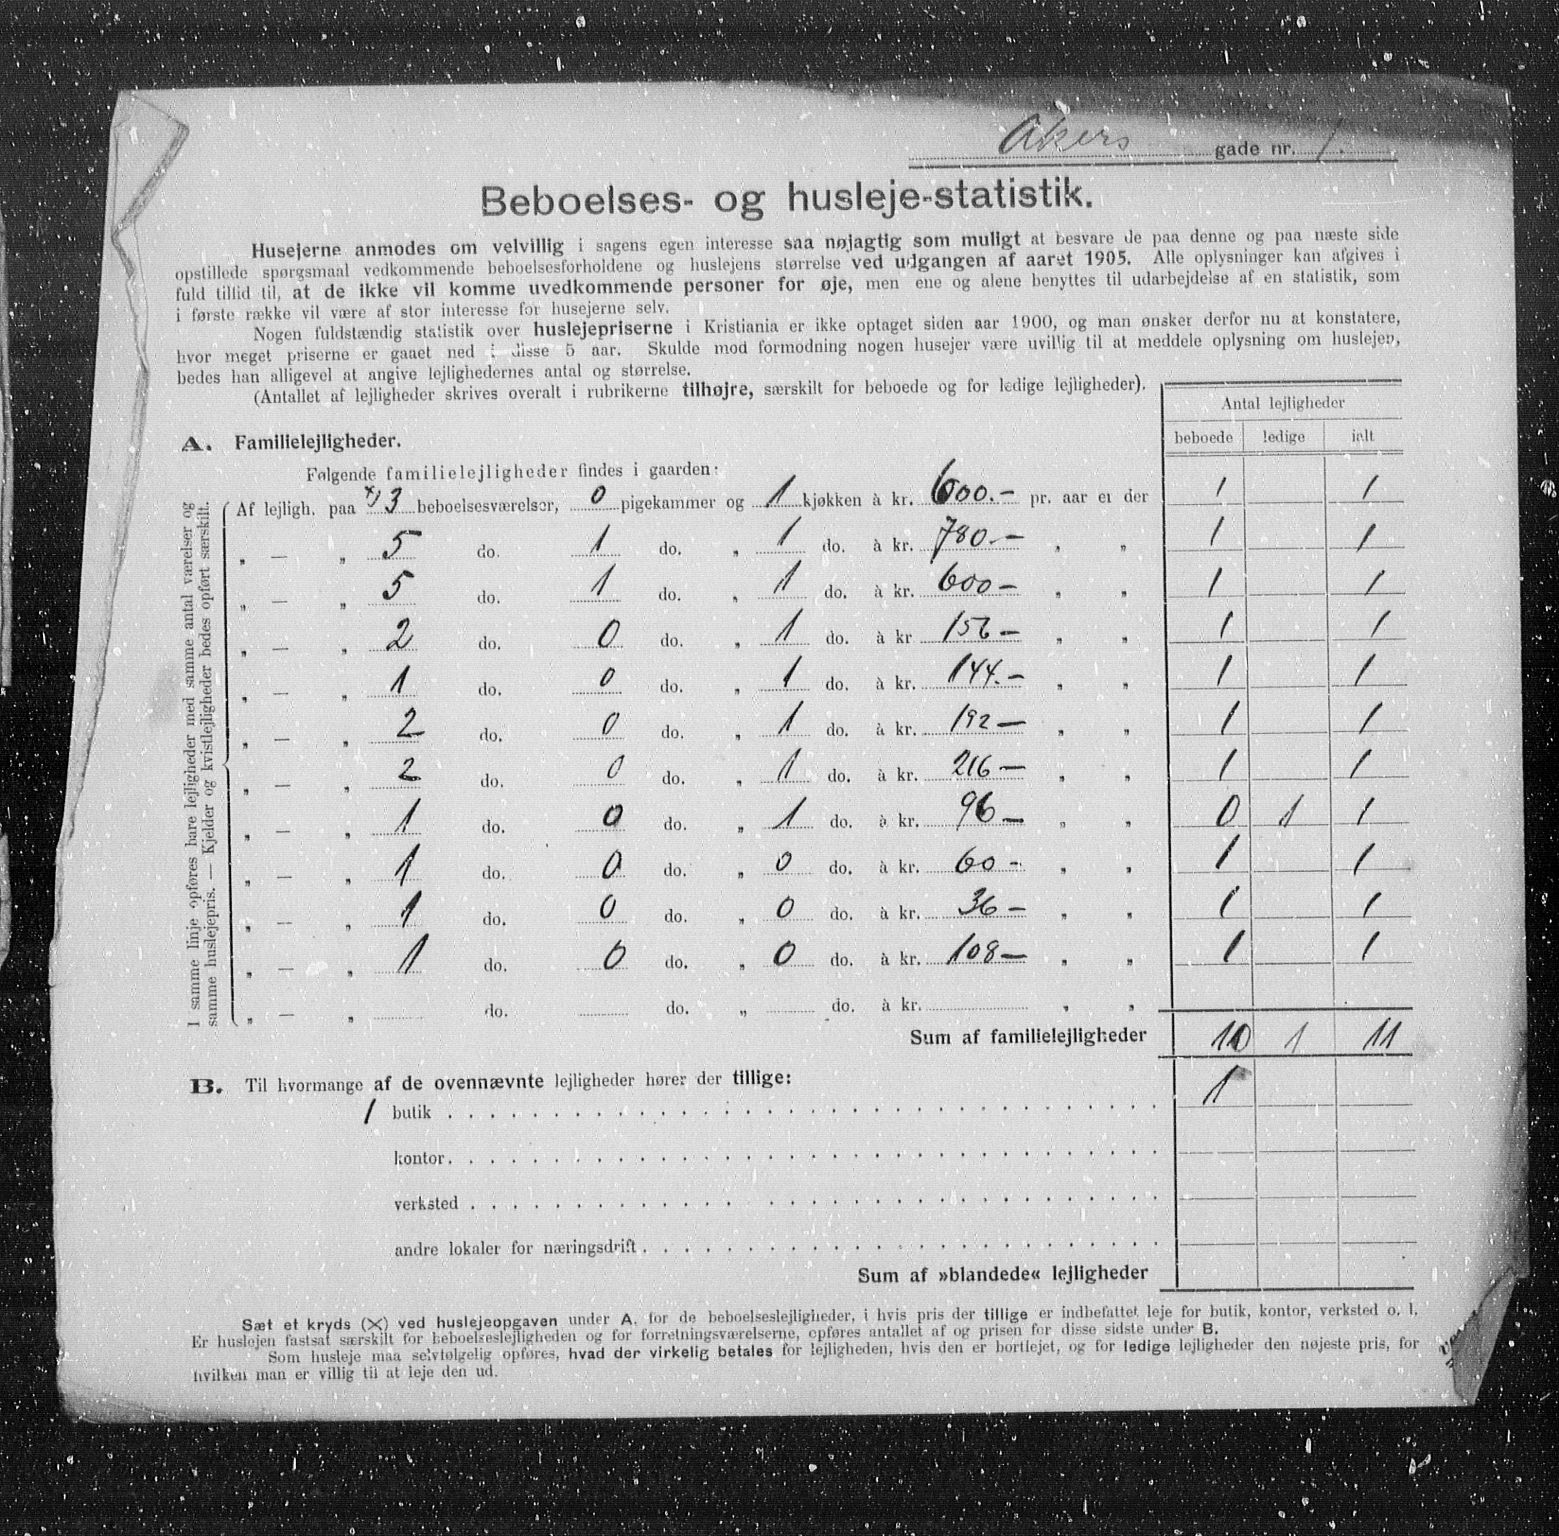 Akers gade nr. 1.
Beboelses- og husleje-statistik.
Husejerne anmodes om velvillig i sagens egen interesse saa nøjagtig som muligt at besvare de paa denne og paa næste side
opstillede spørgsmaal vedkommende beboelsesforholdene og huslejens størrelse ved udgangen af aaret 1905. Alle oplysninger kan afgives i
fuld tillid til, at de ikke vil komme uvedkommende personer for øje, men ene og alene benyttes til udarbejdelse af en statistik, som
i første række vil være af stor interesse for husejerne selv.
Nogen fuldstændig statistik over huslejepriserne i Kristiania er ikke optaget siden aar 1900, og man ønsker derfor nu at konstatere,
hvor meget priserne er gaaet ned i disse 5 aar. Skulde mod formodning nogen husejer være uvillig til at meddele oplysning om huslejen,
bedes han alligevel at angive lejlighedernes antal og størrelse.
(Antallet af lejligheder skrives overalt i rubrikerne tilhøjre, særskilt for beboede og for ledige lejligheder).
Antal lejligheder
beboede ledige ialt
A. Familielejligheder.
Følgende familielejligheder findes i gaarden:
I samme linje opføres bare lejligheder med samme antal værelser og
samme huslejepris. — Kjelder og kvistlejligheder bedes opført særskilt.
Af lejligh. paa x) 3 beboelsesværelser, 0 pigekammer og 1 kjøkken à kr. 600.- pr. aar er der 1 1
„ — „ 5 do. 1 do. „ 1 do. à kr. 780.— „ „ 1 1
„ — „ 5 do. 1 do. „ 1 do. à kr. 600— „ „ 1 1
„ — „ 2 do. 0 do. „ 1 do. à kr 156— „ „ 1 1
„ — „ 1 do. 0 do. „ 1 do. à kr. 144.— „ „ 1 1
„ — „ 2 do. 0 do. „ 1 do. à kr. 192— „ „ 1 1
„ — „ 2 do. 0 do. „ 1 do. à kr. 216— „ „ 1 1
„ — „ 1 do. 0 do. „ 1 do. à kr. 96— „ „ 0 1 1
„ — „ 1 do. 0 do. „ 0 do. à kr. 60- „ „ 1 1
„ — „ 1 do. 0 do. „ 0 do. à kr. 36— „ „ 1 1
„ — „ 1 do. 0 do. „ 0 do. à kr. 108— „ „ 1 1
„ — „ do. do. „ do. à kr. „ „
Sum af familielejligheder 10 1 11
B. Til hvormange af de ovennævnte lejligheder hører der tillige:
1 butik 1
kontor
verksted
andre lokaler for næringsdrift
Sum af »blandede« lejligheder
Sæt et kryds (×) ved huslejeopgaven under A. for de beboelseslejligheder, i hvis pris der tillige er indbefattet leje for butik, kontor, verksted o. l.
Er huslejen fastsat særskilt for beboelseslejligheden og for forretningsværelserne, opføres antallet af og prisen for disse sidste under B.
Som husleje maa selvfølgelig opføres, hvad der virkelig betales for lejligheden, hvis den er bortlejet, og for ledige lejligheder den nøjeste pris, for
hvilken man er villig til at leje den ud.